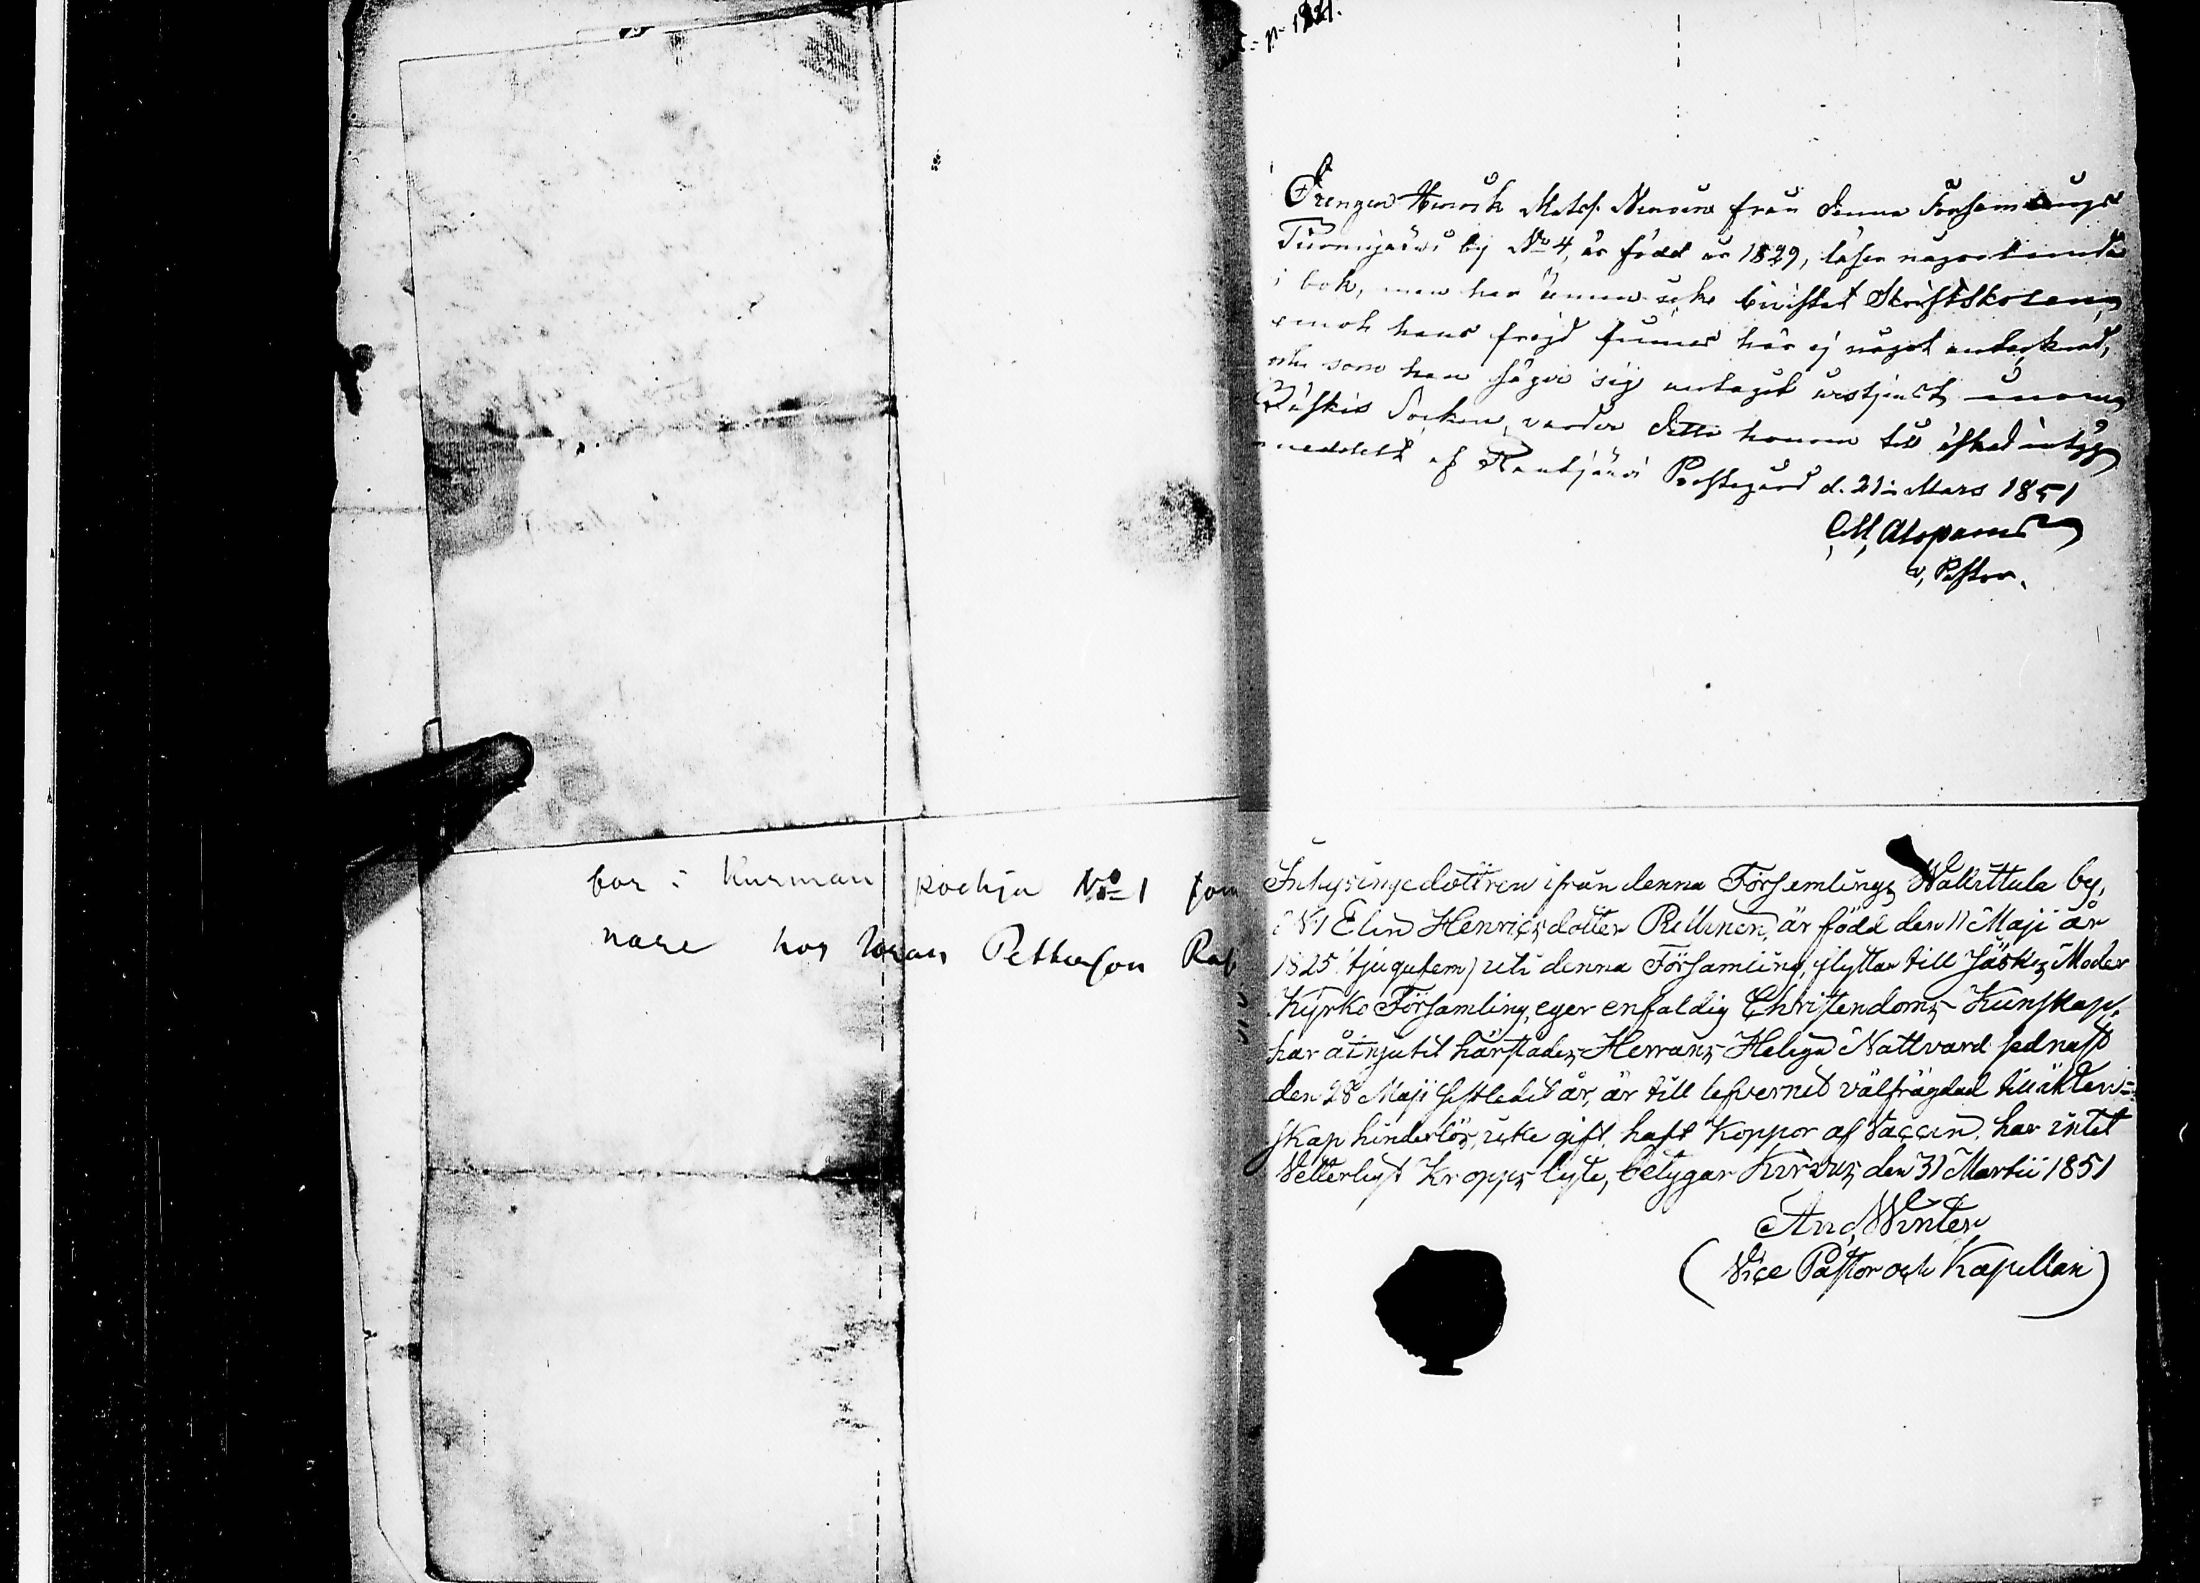 Drengen Henrik Matss. Ninoinen från denna Församlings
by No 4, är född år 1829, läser någorlunda
i bok, men har ännu icke bivistat Skriftskolan,
emot hans frejd finnes här ej något antecknadt,
och som han säger sig antagit årstjenst inom
Jäskis Socken, varder detta honom till äskad intyg
meddelt af Rautjärvi Prostegård d. 21 Mars 1851
C. M. Alopæus
v, Pastor.
bor i Kurman pochja No 1 som
nare hos Göran Pettersson Rat
Inhysingedottren ifrån denna Församlings Walkittula by,
No 1 Elin Henricsdotter Pellinen, är född den 11 Maji år
1825 (tjugufem) uti denna Församling, flyttar till Jäskis Moder
Kyrko Församling, eger enfaldig Christendoms Kunskap,
har åtnjutit härstädes Herrans Heliga Nattvard sednast
den 28 Maji sistledit år, är till lefvernet välfrägdad till äkten=
skap hinderlös, icke gift, haft Koppor af Vaccin, har intet
Vetterligt Kropps lyte, betygar Kirvus den 31 Martii 1851
And, Winter
(Vice Pastor och Kapellan)